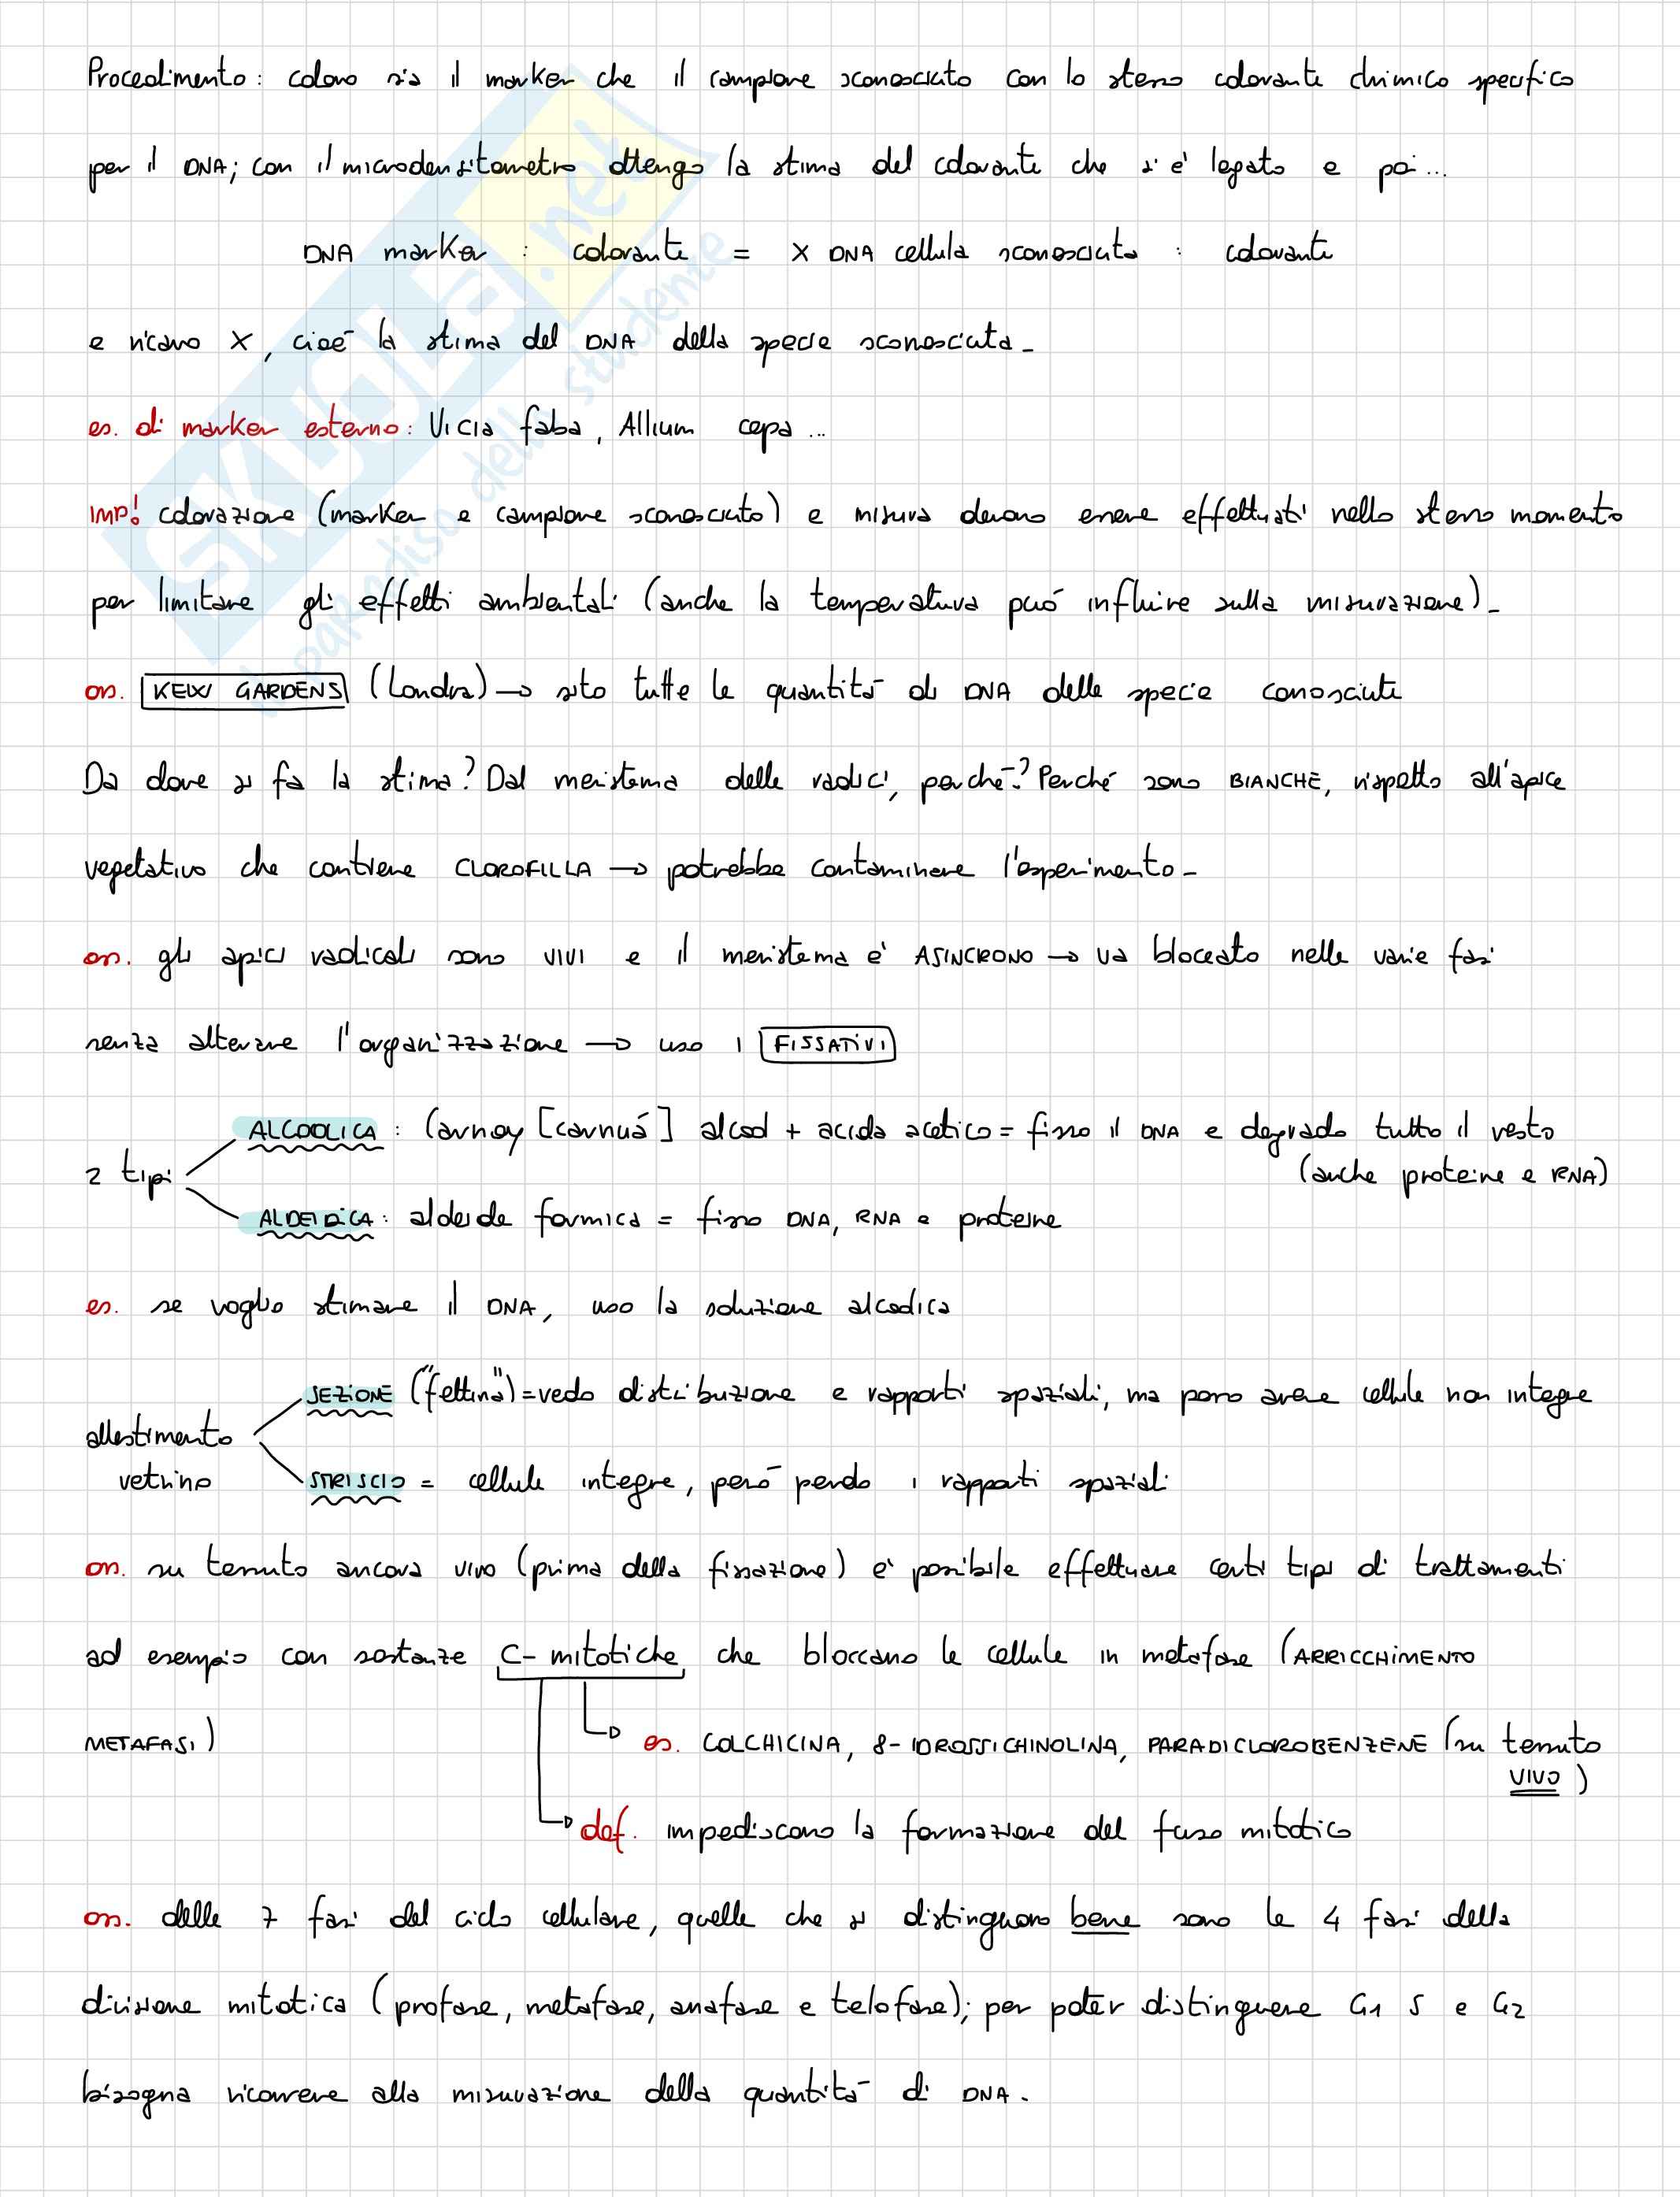 Procedimento: coloro sia il marker che il campione sconosciuto con lo stesso colorante chimico specifico
per il DNA; con il microdensitometro ottengo la stima del colorante che si è legato e poi...
DNA marker : colorante = X DNA cellula sconosciuta : colorante
e ricavo X, cioè la stima del DNA della specie sconosciuta_
es. di marker esterno: Vicia faba, Allium cepa...
IMP! colorazione (marker e campione sconosciuto) e misura devono essere effettuati nello stesso momento
per limitare gli effetti ambientali (anche la temperatura può influire sulla misurazione)_
oss. KEW GARDENS (Londra) → sito tutte le quantità di DNA delle specie conosciute
Da dove si fa la stima? Dal meristema delle radici, perché? Perché sono BIANCHE, rispetto all'apice
vegetativo che contiene CLOROFILLA → potrebbe contaminare l'esperimento_
oss. gli apici radicali sono VIVI e il meristema è ASINCRONO → va bloccato nelle varie fasi
senza alterare l'organizzazione → uso i FISSATIVI
2 tipi
ALCOOLICA: Carnoy [carnuá] alcool + acido acetico = fisso il DNA e degrado tutto il resto
(anche proteine e RNA)
ALDEIDICA: aldeide formica = fisso DNA, RNA e proteine
es. se voglio stimare il DNA, uso la soluzione alcolica
allestimento
vetrino
SEZIONE ("fettina") = vedo distribuzione e rapporti spaziali, ma posso avere cellule non integre
STRISCIO = cellule integre, però perdo i rapporti spaziali
oss. su tessuto ancora vivo (prima della fissazione) è possibile effettuare certi tipi di trattamenti
ad esempio con sostanze C-mitotiche che bloccano le cellule in metafase (ARRICCHIMENTO
METAFASI)
es. COLCHICINA, 8-IDROSSICHINOLINA, PARADICLOROBENZENE (su tessuto
VIVO)
def. impediscono la formazione del fuso mitotico
oss. delle 7 fasi del ciclo cellulare, quelle che si distinguono bene sono le 4 fasi della
divisione mitotica (profase, metafase, anafase e telofase); per poter distinguere G1 S e G2
bisogna ricorrere alla misurazione della quantità di DNA.
SKUOLA.net
il paradiso dello studente